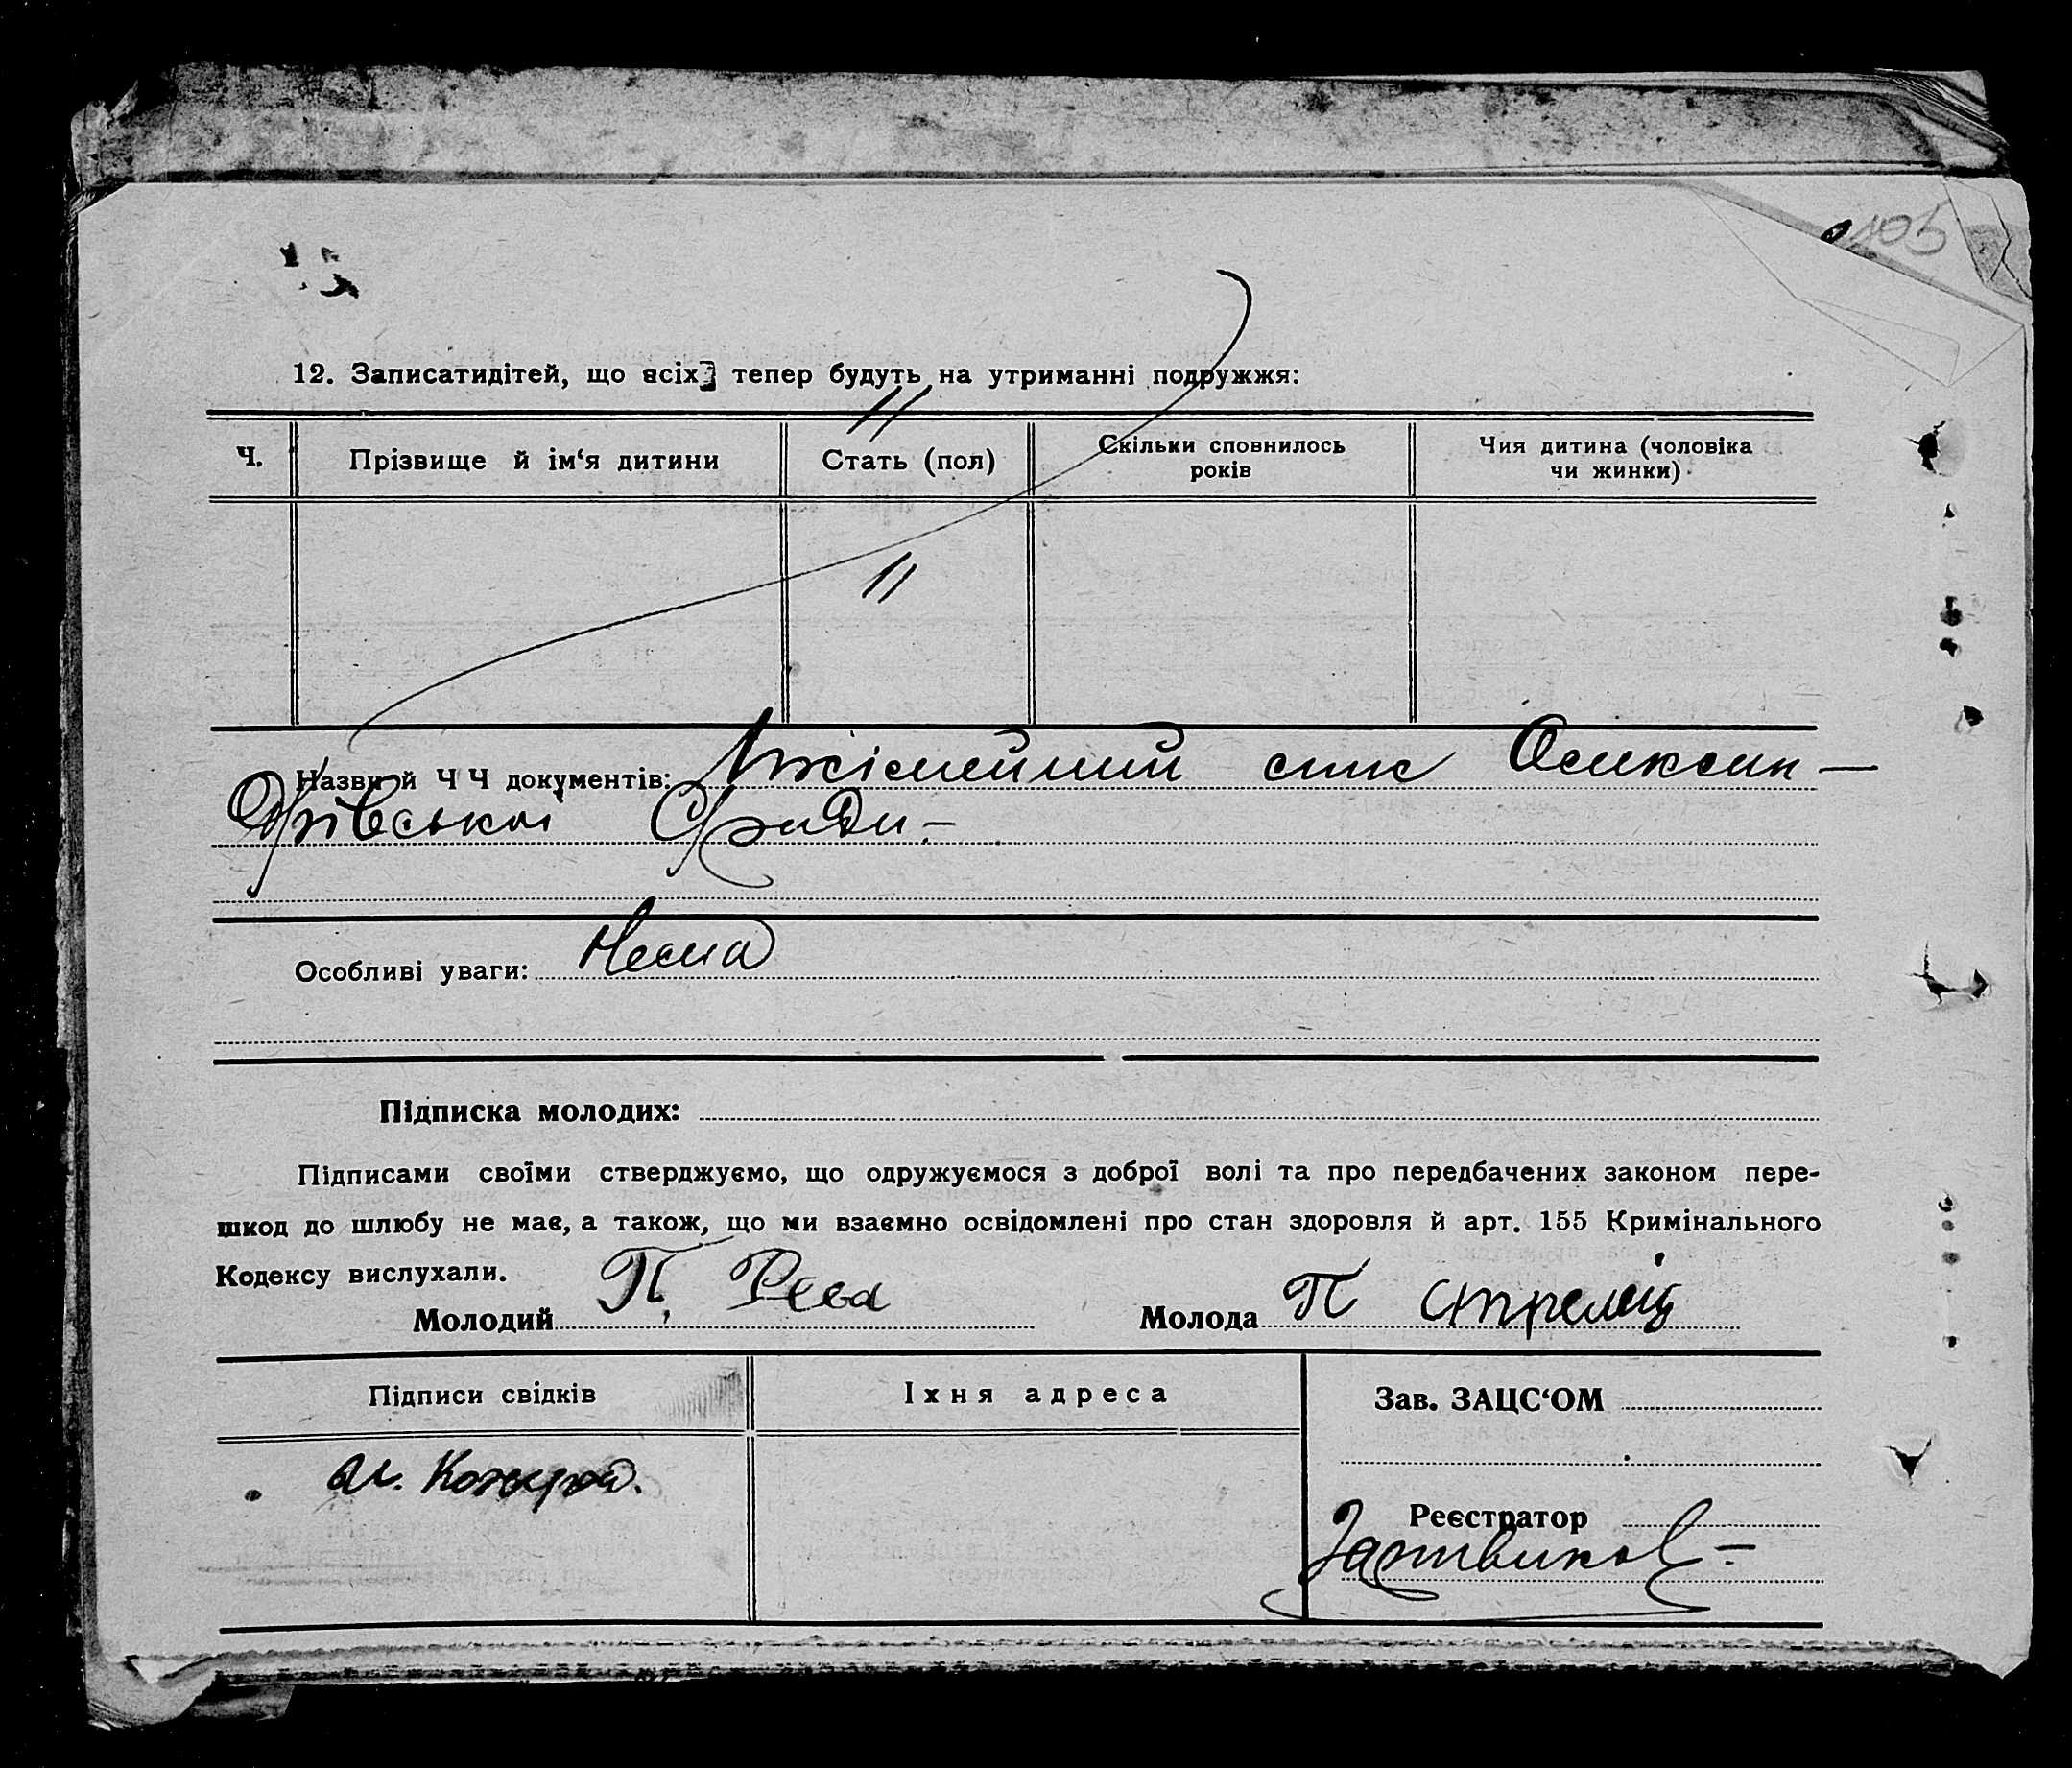 105
12. Записатидітей, що всіх тепер будуть на утриманні подружжя:
Ч.
Прізвище й ім‘я дитини
Стать (пол)
Скільки сповнилось
років
Чия дитина (чоловіка
чи жинки)
Назви й Ч Ч документів: спис Олексан-
дрівської С/ради -
Особливі уваги: Нема
Підписка молодих:
Підписами своїми стверджуємо, що одружуємося з доброї волі та про передбачених законом пере-
шкод до шлюбу не має, а також, що ми взаємно освідомлені про стан здоровля й арт. 155 Кримінального
Кодексу вислухали.
Молодий П.
Молода П Стрелец
Підписи свідків
Їхня адреса
Зав. ЗАЦС‘ОМ
Реєстратор